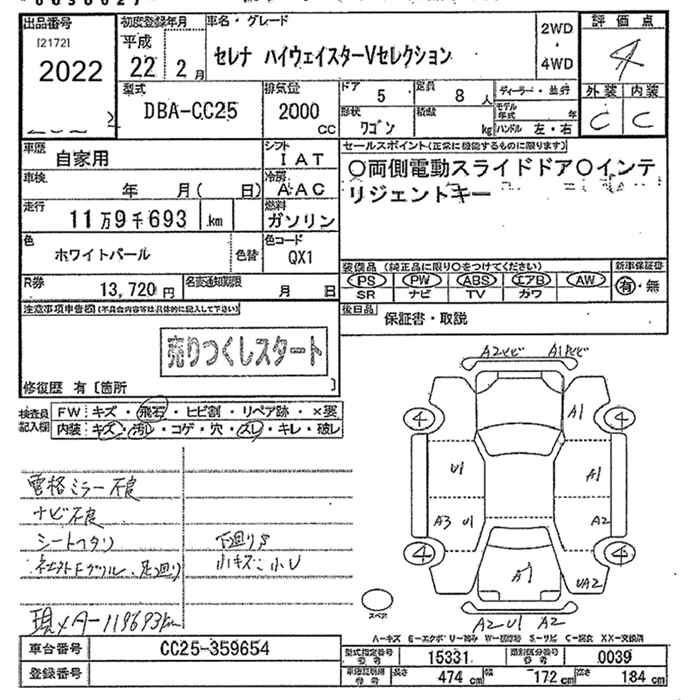 出品番号
[2172]
2022
初度登録年月
平成
22 2月
車名・グレード
セレナ ハイウェイスターVセレクション
2WD
・
4WD
評価点
4
外装 内装
C C
型式
DBA-CC25
排気量
2000
CC
ドア
5
定員
8人
ディーラー・並行
モデル年式 年
形状
ワゴン
積載
kg
ハンドル 左・右
車歴
自家用
シフト
IAT
車検
年 月( 日)
冷房
AAC
走行
11万9千693 km
燃料
ガソリン
色
ホワイトパール
色替
色コード
QX1
R券
13,720円
名変通知期限
月 日
セールスポイント(正常に機能するものに限ります)
○両側電動スライドドア○インテ
リジェントキー
装備品(純正品に限り○をつけてください)
PS PW ABS エアB AW
SR ナビ TV カワ
新車保証書
有・無
後日品
保証書・取説
注意事項申告欄(不具合内容等は具体的に記入して下さい)
売りつくしスタート
修復歴 有〔箇所 〕
検査員
記入欄
FW キズ・飛石・ヒビ割・リペア跡・×要
内装 キズ・汚レ・コゲ・穴・スレ・キレ・破レ
ミラー不良
ナビ不良
シートヘタリ
下廻りサ
小キズ・小U
足廻り
現メーター119693km
車台番号
CC25-359654
登録番号
A2 ヒビ A1 ヒビ
4 4
A1
U1 A1
A3 U1 A2
4 4
A1
UA2
スペア
A2 U1 A2
A-キズ E-エクボ U-凹み S-サビ C-腐食 XX-交換済
型式指定番号
15331
類別区分番号
0039
長さ
474 cm
幅
172 cm
高さ
184 cm